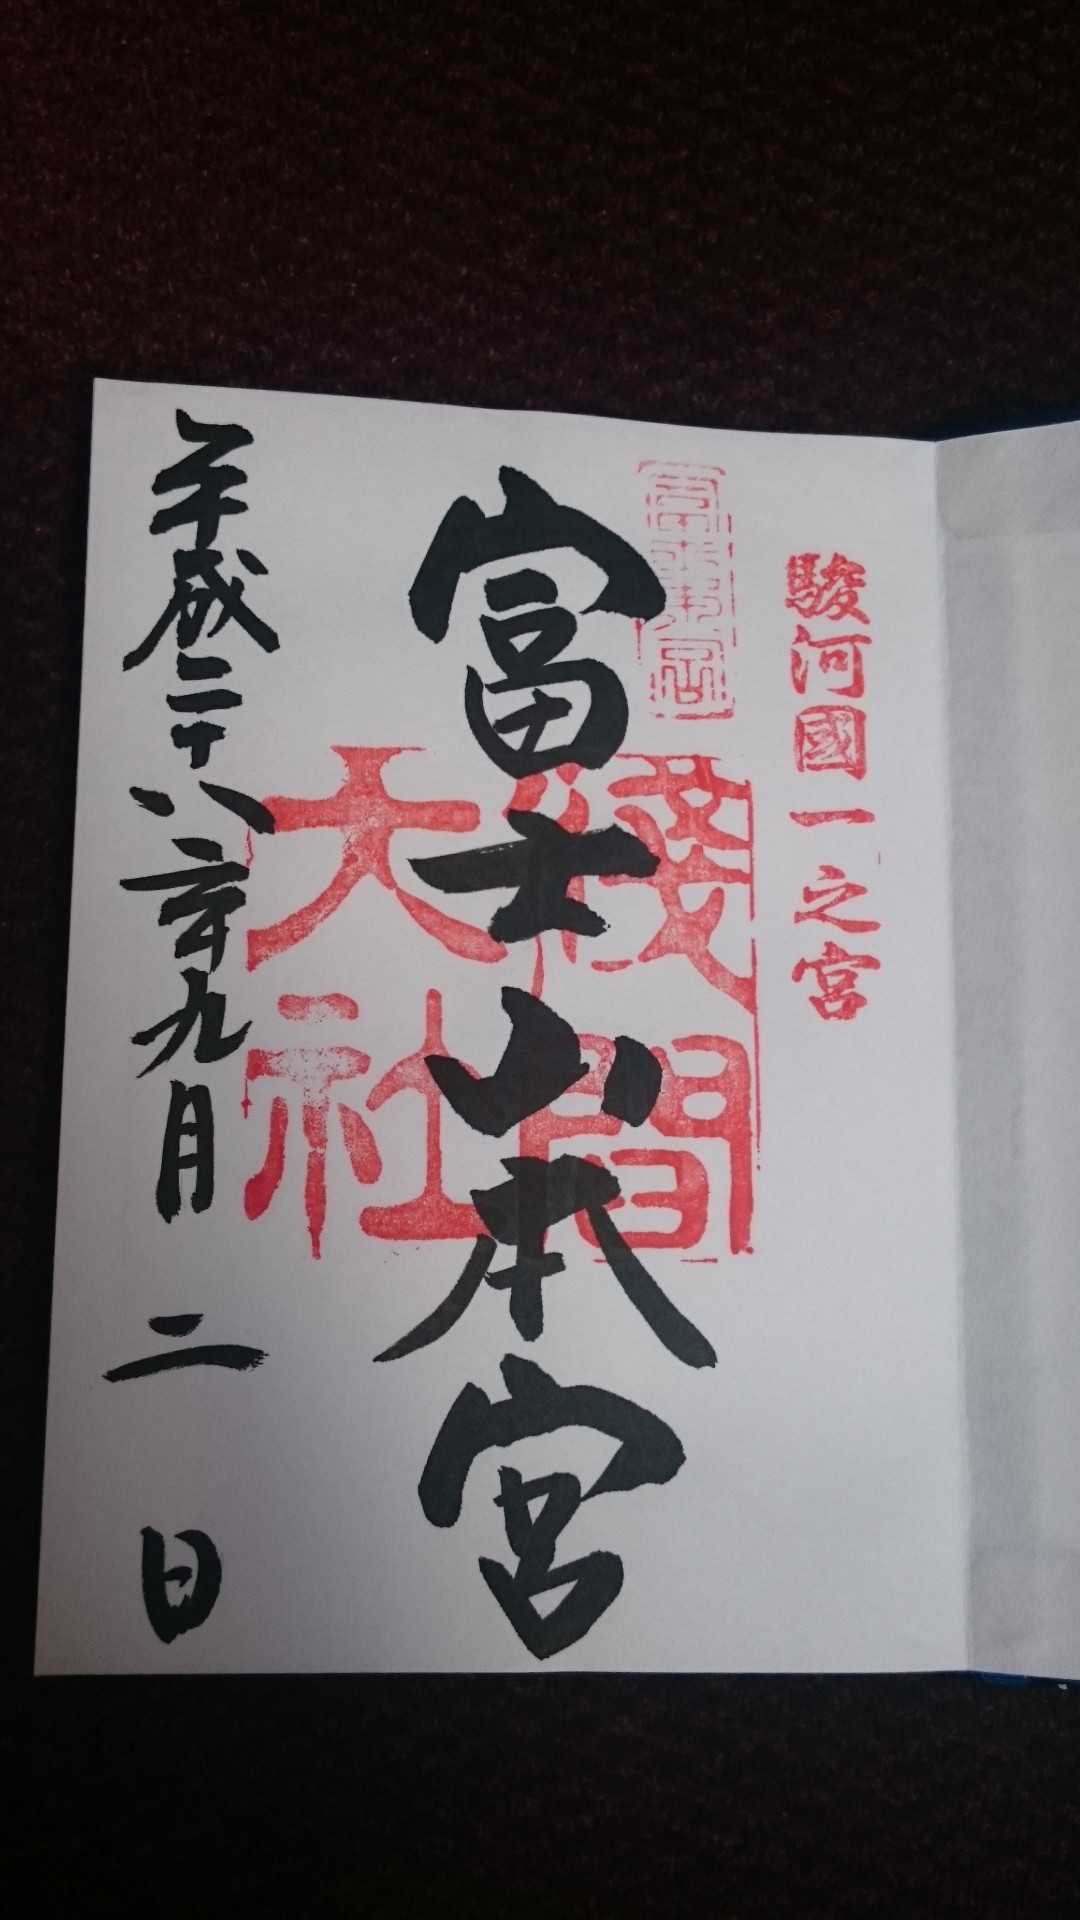 駿河國一之宮
富士山本宮
淺間大社
平成二十八年九月二日